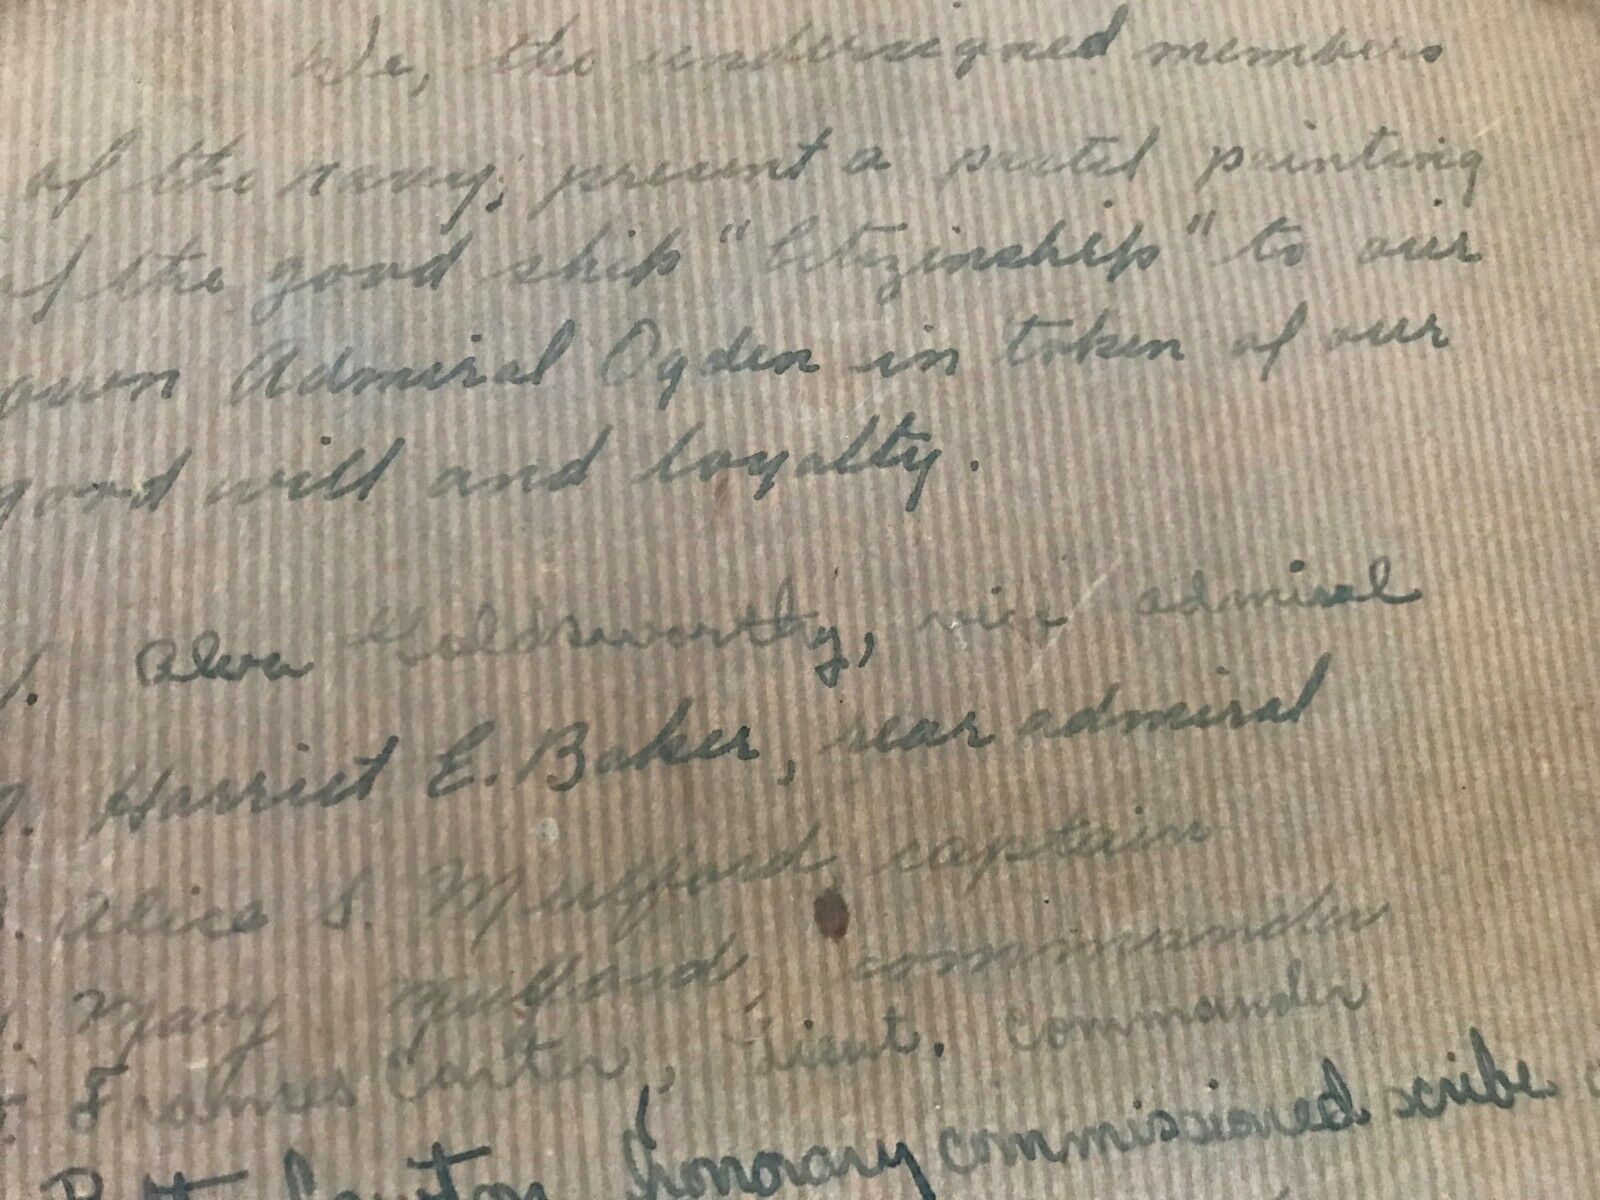 We, the undersigned members
of the navy, present a pastel painting
of the good ship "Citizinship" to our
own Admiral Ogden in token of our
good will and loyalty.
1. Alva Goldsworthy, vice admiral
Harriet E. Baker, rear admiral
Alice S. Mulford, captain
Mary Mulford, commander
Frances Carter, Lieut. Commander
honorary commissioned scribe